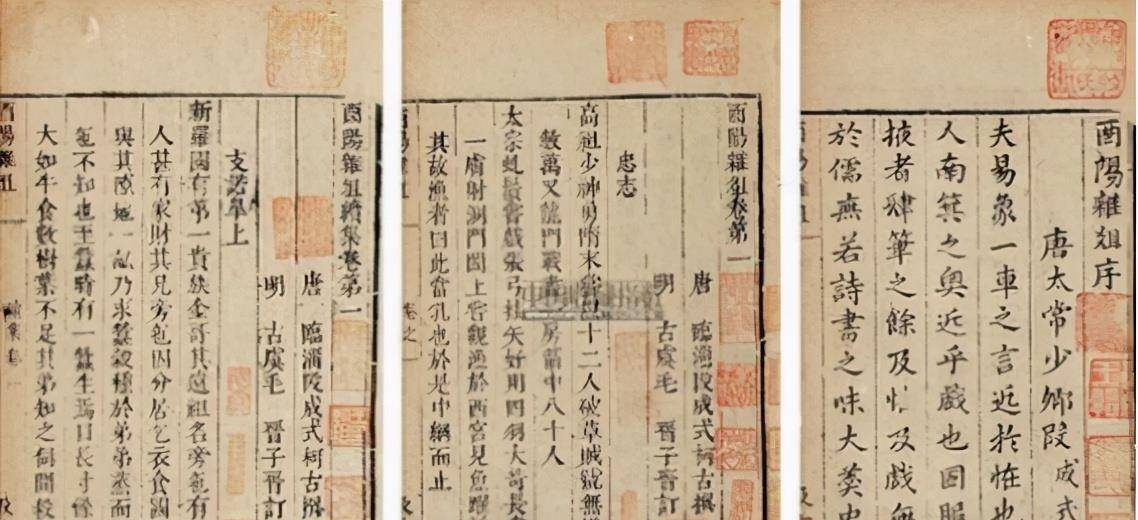 酉陽雜俎序
唐太常少卿段成式
夫易象一車之言近於恠也
人南箕之奥近乎戲也固服
掖者肆筆之餘及恠及戲無
於儒無若詩書之味大羹史
酉陽雜俎卷第一
唐 臨淄段成式柯古撰
明 古虞毛 晉子晉訂
忠志
高祖少神勇隋末嘗以十二人破草賊號無端
數萬又龍門戰盡一房箭中八十人
太宗虬鬚嘗戲張弓挂矢好用四羽大笴長
一膚射洞門闔上嘗觀漁於西宮見魚躍
其故漁者曰此當乳也於是中網而止
酉陽雜俎
酉陽雜俎續集卷第一
唐 臨淄段成式柯古撰
明 古虞毛 晉子晉訂
支諾皋上
新羅國有第一貴族金哥其遠祖名旁㐌有
人甚有家財其兄旁㐌因分居乞衣食國
與其隙地一畝乃求蠶穀種於弟弟蒸而
㐌不知也至蠶時有一蠶生焉日長寸餘
大如牛食數樹葉不足其弟知之伺間殺
酉陽雜俎